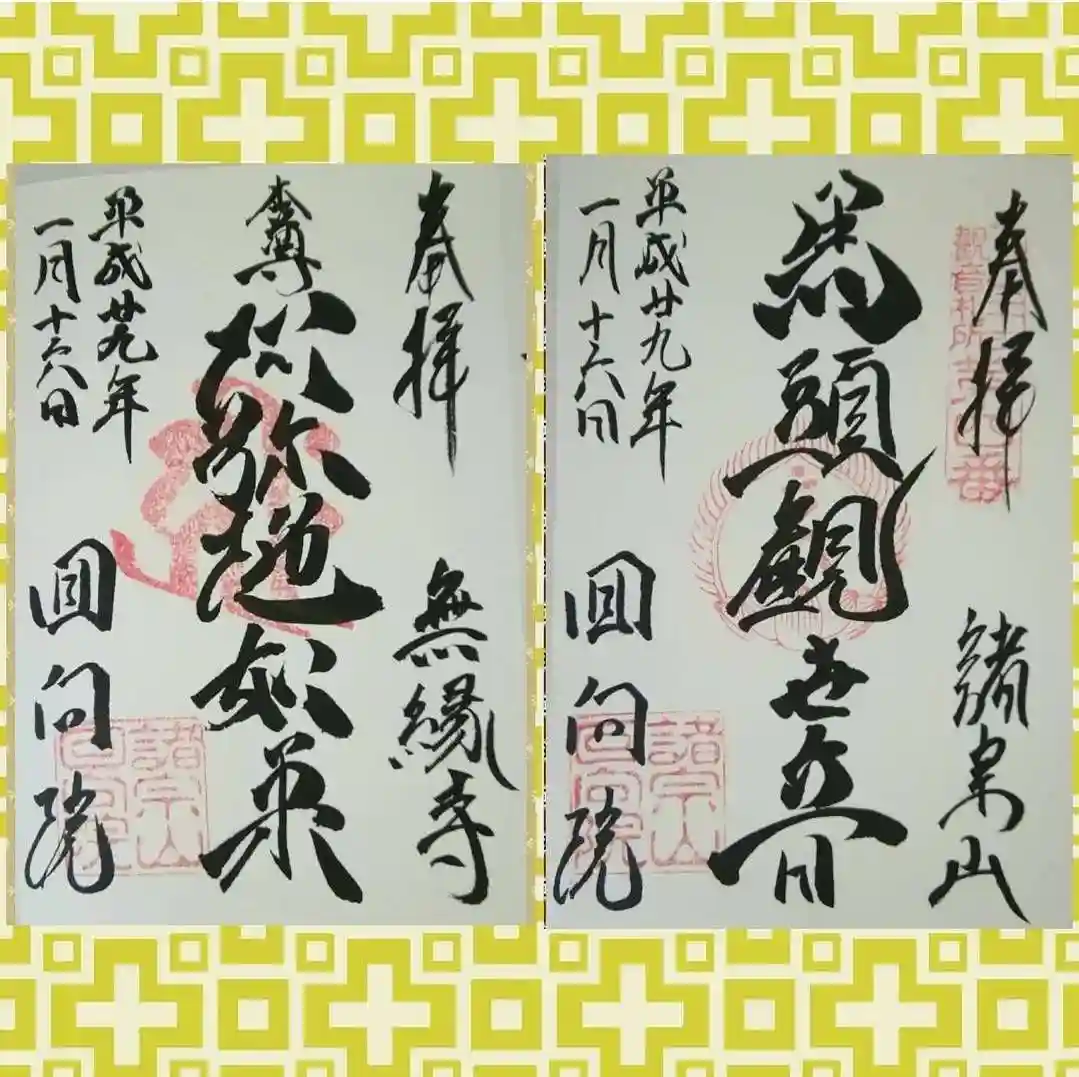 奉拝
無縁寺
本尊
阿弥陀如来
平成廿九年
一月十六日
回向院
諸宗山
回向院
奉拝
諸宗山
観音札所
馬頭観世音
平成廿九年
一月十六日
回向院
諸宗山
回向院